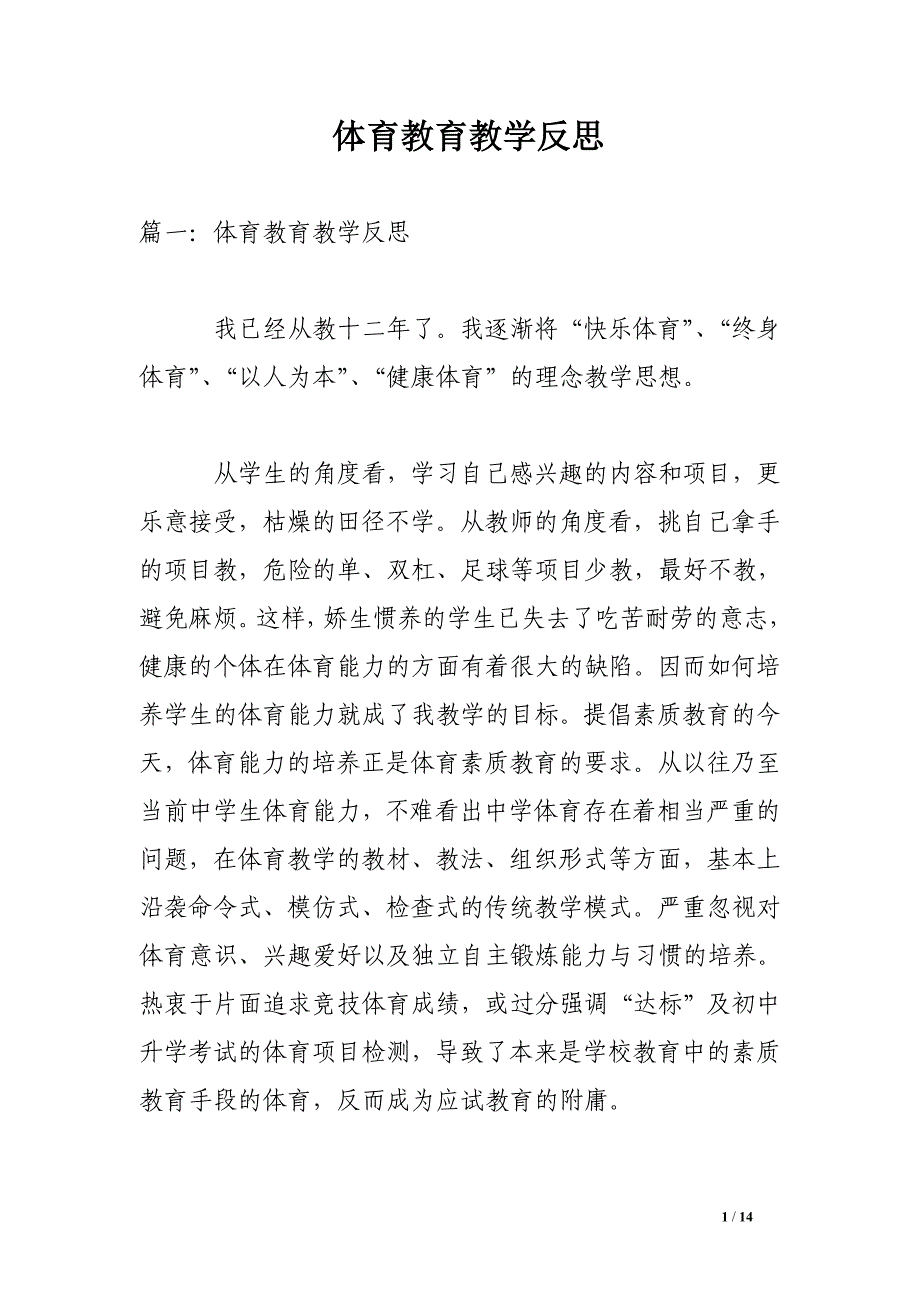 体育教育教学反思
篇一：体育教育教学反思
我已经从教十二年了。我逐渐将“快乐体育”、“终身
体育”、“以人为本”、“健康体育”的理念教学思想。
从学生的角度看，学习自己感兴趣的内容和项目，更
乐意接受，枯燥的田径不学。从教师的角度看，挑自己拿手
的项目教，危险的单、双杠、足球等项目少教，最好不教，
避免麻烦。这样，娇生惯养的学生已失去了吃苦耐劳的意志，
健康的个体在体育能力的方面有着很大的缺陷。因而如何培
养学生的体育能力就成了我教学的目标。提倡素质教育的今
天，体育能力的培养正是体育素质教育的要求。从以往乃至
当前中学生体育能力，不难看出中学体育存在着相当严重的
问题，在体育教学的教材、教法、组织形式等方面，基本上
沿袭命令式、模仿式、检查式的传统教学模式。严重忽视对
体育意识、兴趣爱好以及独立自主锻炼能力与习惯的培养。
热衷于片面追求竞技体育成绩，或过分强调“达标”及初中
升学考试的体育项目检测，导致了本来是学校教育中的素质
教育手段的体育，反而成为应试教育的附庸。
1 / 14